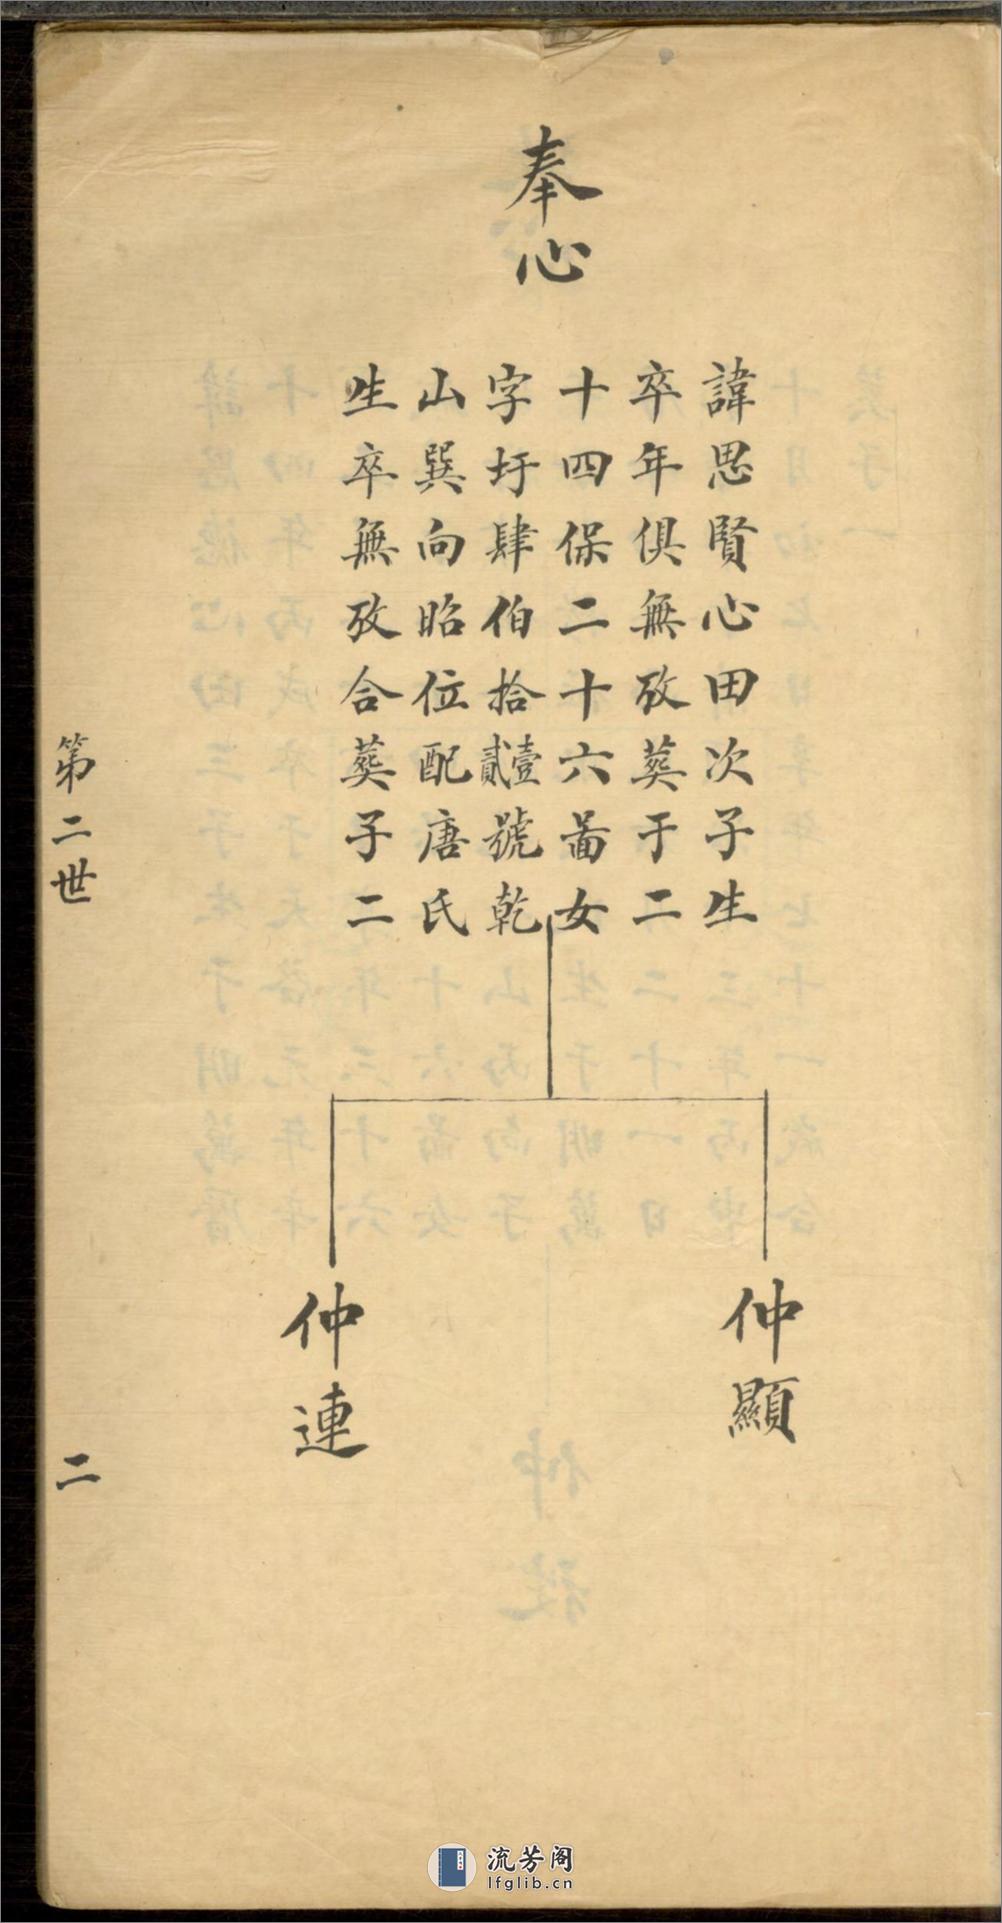 奉心
諱思賢心田次子生
卒年俱無攷葬于二
十四保二十六啚女
字圩肆伯拾壹貳號乾
山巽向昭位配唐氏
生卒無攷合葬子二
仲顯
仲連
第二世
二
流芳阁
lfglib.cn